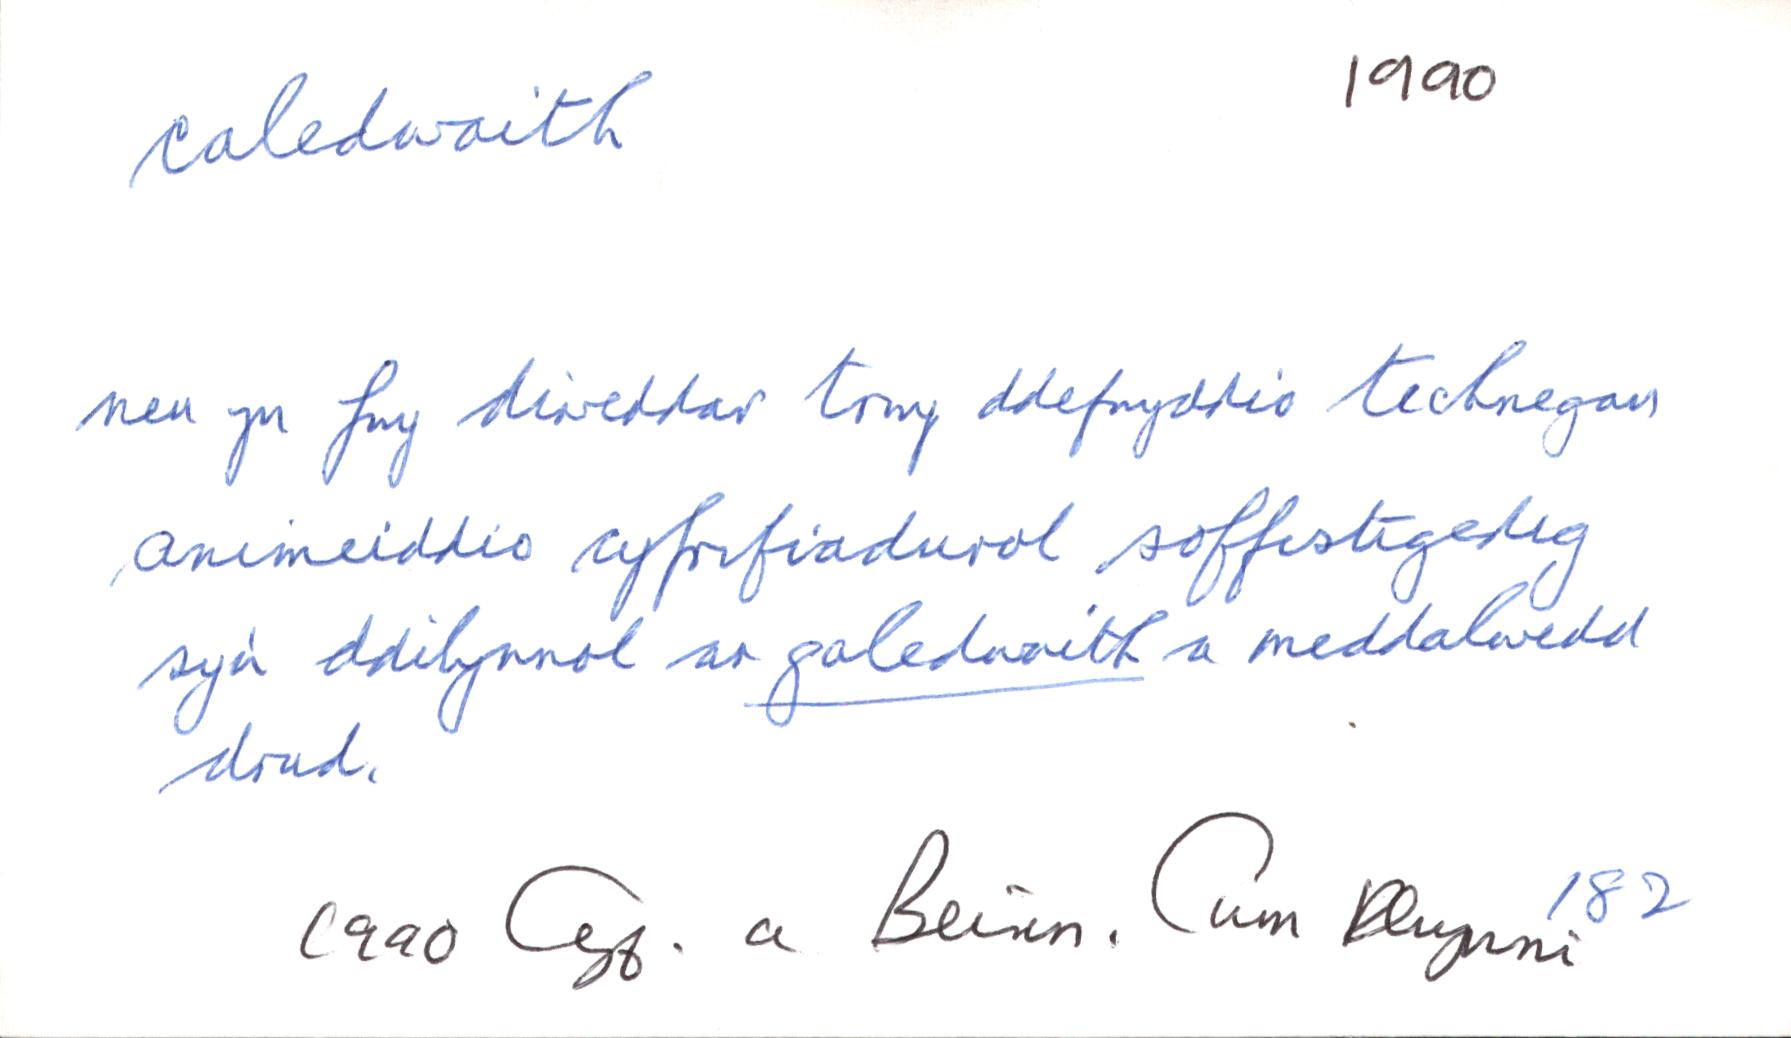 caledwaith 1990
neu yn fwy diweddar trwy ddefnyddio technegau
animeiddio cyfrifiadurol soffistigedig
sy'n ddibynnol ar galedwaith a meddalwedd
drud.
1990 a Cwm 182